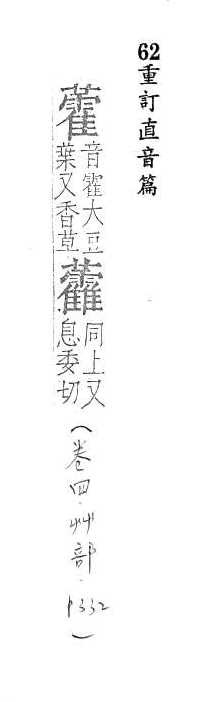 62重訂直音篇
藿音霍大豆葉又香草𧆑同上又息委切(卷四.艸部.P332)